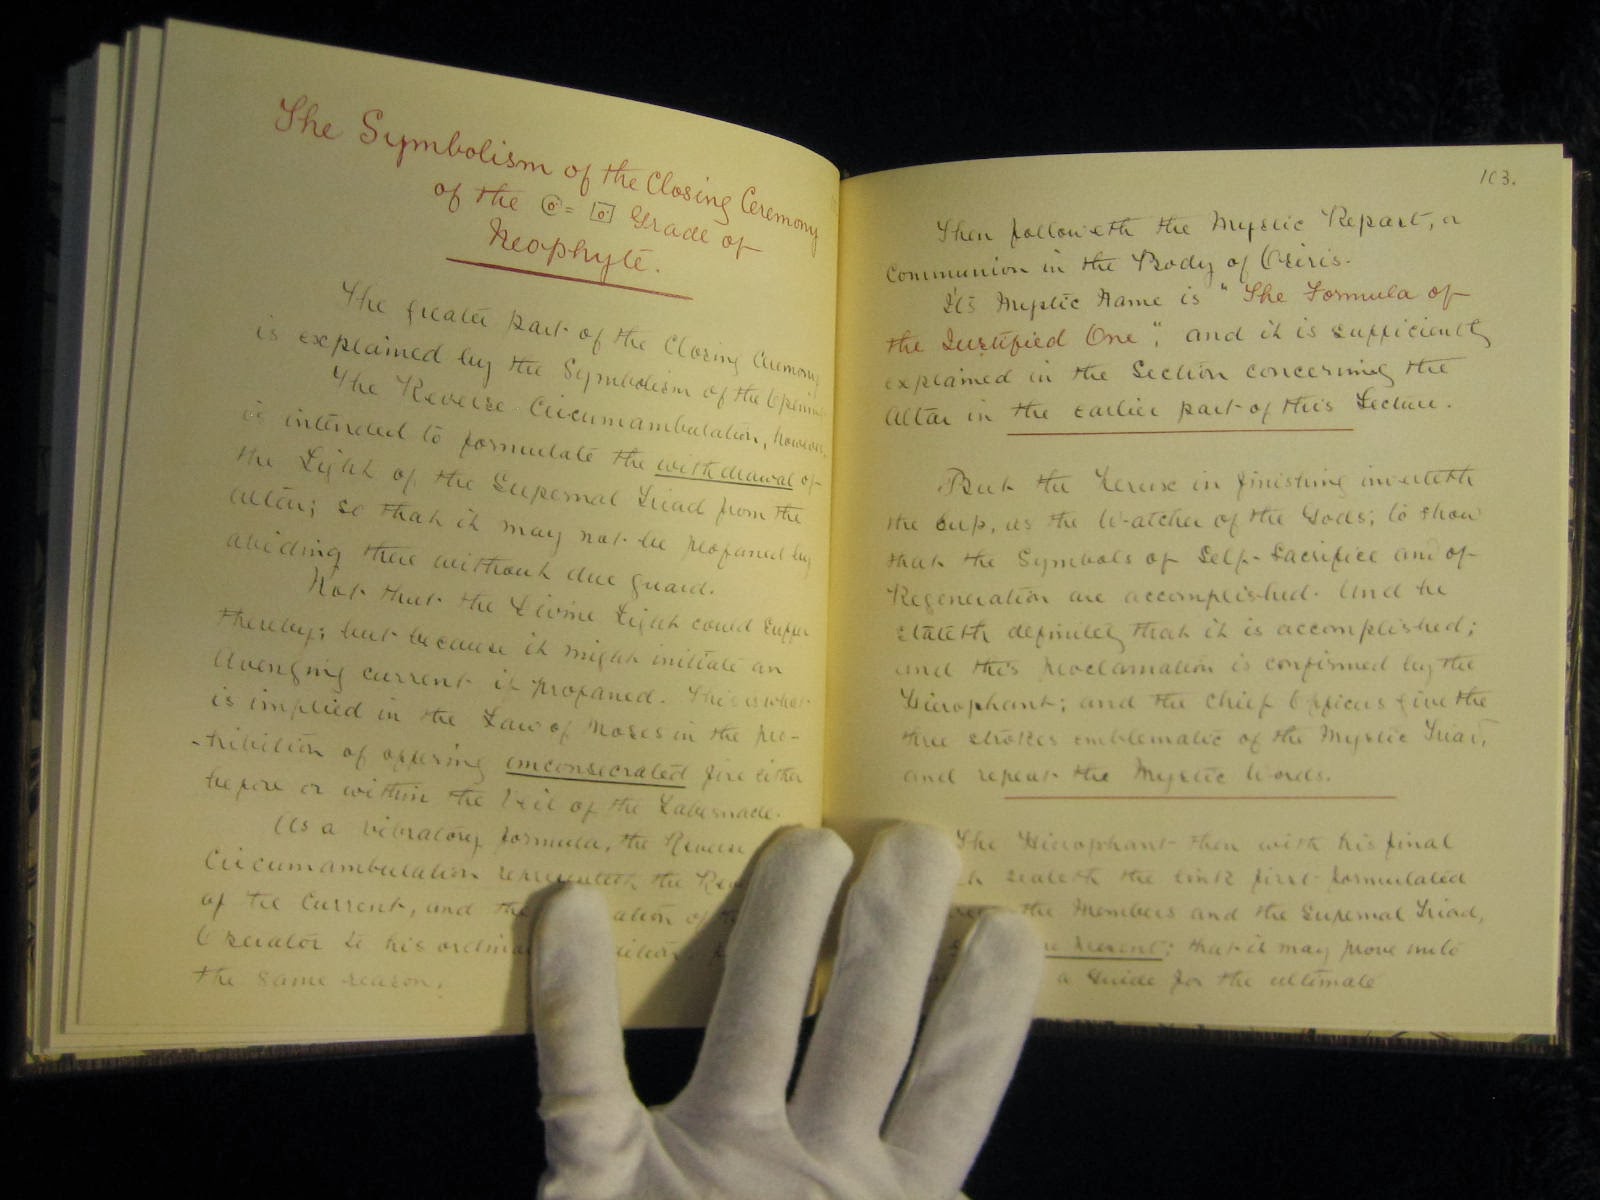 The Symbolism of the Closing Ceremony
of the 0 = 0 Grade of
Neophyte.
The greater part of the Closing Ceremony
is explained by the Symbolism of the Opening
The Reverse Circumambulation, however,
is intended to formulate the withdrawal of
the Light of the Supernal Triad from the
Altar; so that it may not be profaned by
abiding there without due guard.
Not that the Divine Light could suffer
thereby; but because it might initiate an
Avenging current if profaned. This is what
is implied in the Law of Moses in the pro-
-hibition of offering unconsecrated fire either
before or within the Veil of the Tabernacle.
As a vibratory formula, the Reverse
Circumambulation representeth the
of the Current, and the
Operator to his
the same reason.
103.
Then followeth the Mystic Repast, a
Communion in the Body of Osiris.
Its Mystic Name is "The Formula of
the Justified One", and it is sufficiently
explained in the Section concerning the
Altar in the earlier part of this Lecture.
But the Kerux in finishing inverteth
the Cup, as the Watcher of the Gods; to show
that the Symbols of Self-Sacrifice and of
Regeneration are accomplished. And he
stateth definitely that it is accomplished;
and this proclamation is confirmed by the
Hierophant; and the Chief Officers give the
three strokes emblematic of the Mystic Triad,
and repeat the Mystic Words.
The Hierophant then with his final
sealeth the link first formulated
the Members and the Supernal Triad,
present; that it may prove unto
a Guide for the ultimate